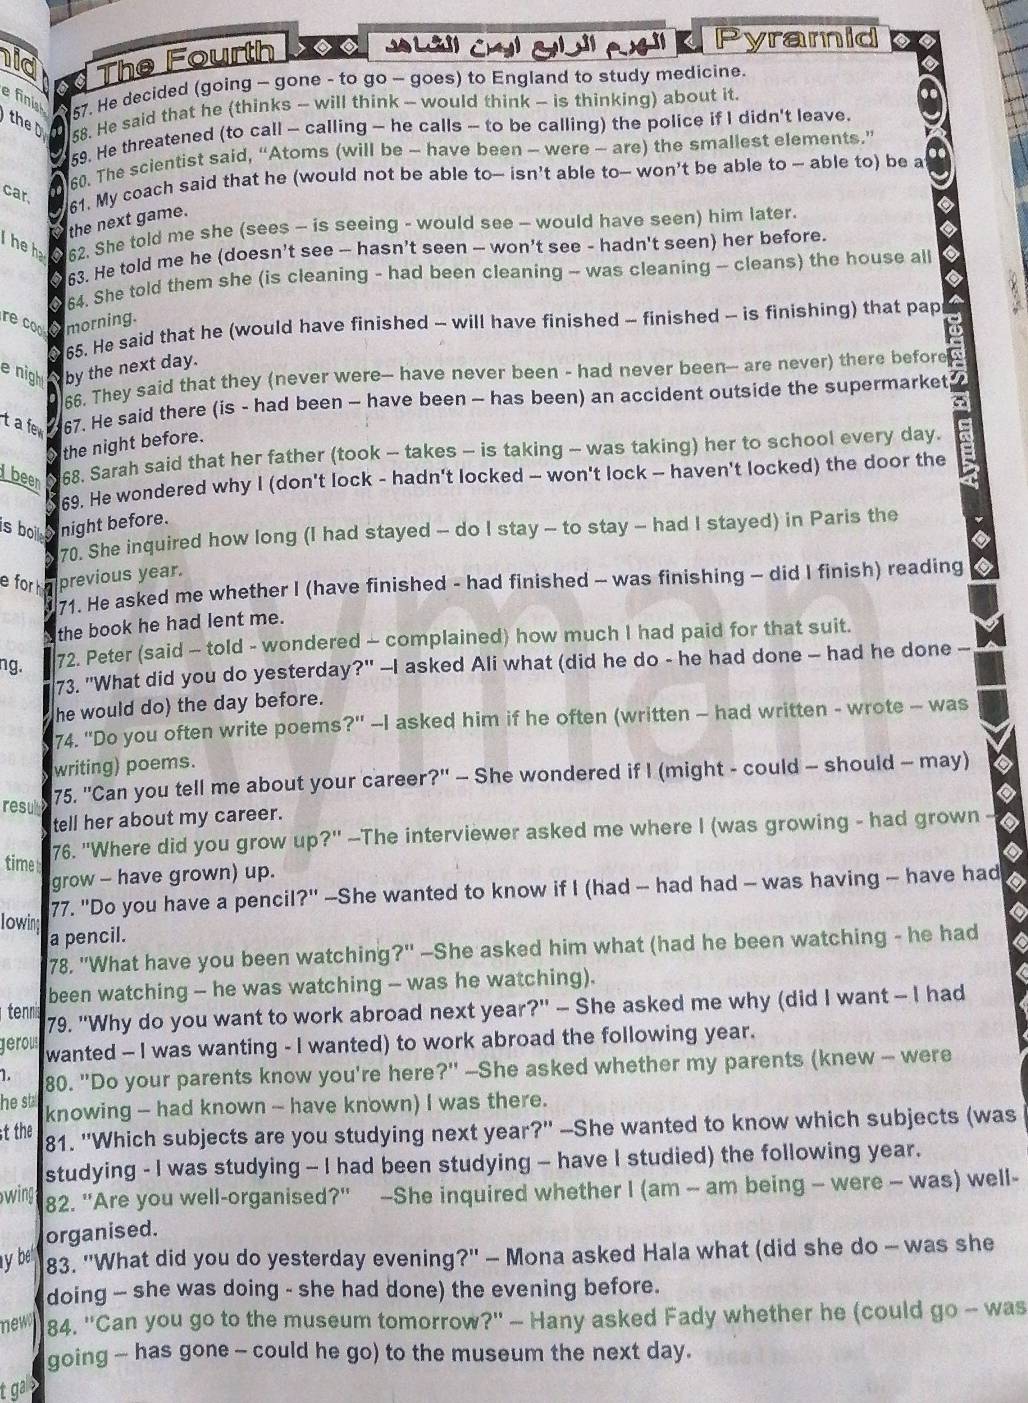 The Fourth الهرم الرابع ايمن الشاهد Pyramid
57. He decided (going – gone - to go – goes) to England to study medicine.
58. He said that he (thinks – will think – would think – is thinking) about it.
59. He threatened (to call – calling – he calls – to be calling) the police if I didn't leave.
60. The scientist said, "Atoms (will be – have been – were – are) the smallest elements."
61. My coach said that he (would not be able to– isn't able to– won't be able to – able to) be a
the next game.
62. She told me she (sees – is seeing - would see – would have seen) him later.
63. He told me he (doesn't see – hasn't seen – won't see - hadn't seen) her before.
64. She told them she (is cleaning - had been cleaning – was cleaning – cleans) the house all
morning.
65. He said that he (would have finished – will have finished – finished – is finishing) that pap
by the next day.
66. They said that they (never were– have never been - had never been– are never) there before
67. He said there (is - had been – have been – has been) an accident outside the supermarket
the night before.
68. Sarah said that her father (took – takes – is taking – was taking) her to school every day.
69. He wondered why I (don't lock - hadn't locked – won't lock – haven't locked) the door the
night before.
70. She inquired how long (I had stayed – do I stay – to stay – had I stayed) in Paris the
previous year.
71. He asked me whether I (have finished - had finished – was finishing – did I finish) reading
the book he had lent me.
72. Peter (said – told - wondered – complained) how much I had paid for that suit.
73. "What did you do yesterday?" –I asked Ali what (did he do - he had done – had he done –
he would do) the day before.
74. "Do you often write poems?" –I asked him if he often (written – had written - wrote – was
writing) poems.
75. "Can you tell me about your career?" – She wondered if I (might - could – should – may)
tell her about my career.
76. "Where did you grow up?" –The interviewer asked me where I (was growing - had grown -
grow – have grown) up.
77. "Do you have a pencil?" –She wanted to know if I (had – had had – was having – have had
a pencil.
78. "What have you been watching?" –She asked him what (had he been watching - he had
been watching – he was watching – was he watching).
79. "Why do you want to work abroad next year?" – She asked me why (did I want – I had
wanted – I was wanting - I wanted) to work abroad the following year.
80. "Do your parents know you're here?" –She asked whether my parents (knew – were
knowing – had known – have known) I was there.
81. "Which subjects are you studying next year?" –She wanted to know which subjects (was I
studying - I was studying – I had been studying – have I studied) the following year.
82. "Are you well-organised?" –She inquired whether I (am – am being – were – was) well-
organised.
83. "What did you do yesterday evening?" – Mona asked Hala what (did she do – was she
doing – she was doing - she had done) the evening before.
84. "Can you go to the museum tomorrow?" – Hany asked Fady whether he (could go – was
going – has gone – could he go) to the museum the next day.
Ayman El Shahed